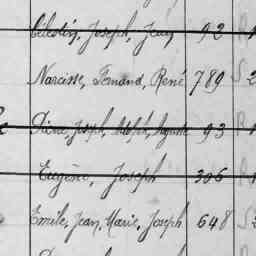 Célestin, Joseph, Jean 92
Narcisse, Fernand, René 789 S 2
Pierre, Joseph, Adolph, Auguste 93 R 1
Eugène, Joseph 306 R 1
Emile, Jean, Marie, Joseph 648 S